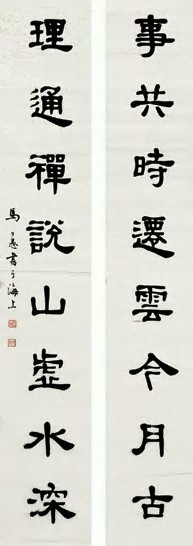 事共時遷雲今月古
理通禪説山虛水深
馬公愚書于海上